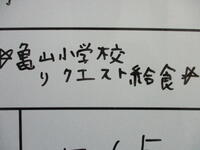 ☆亀山小学校
リクエスト給食☆